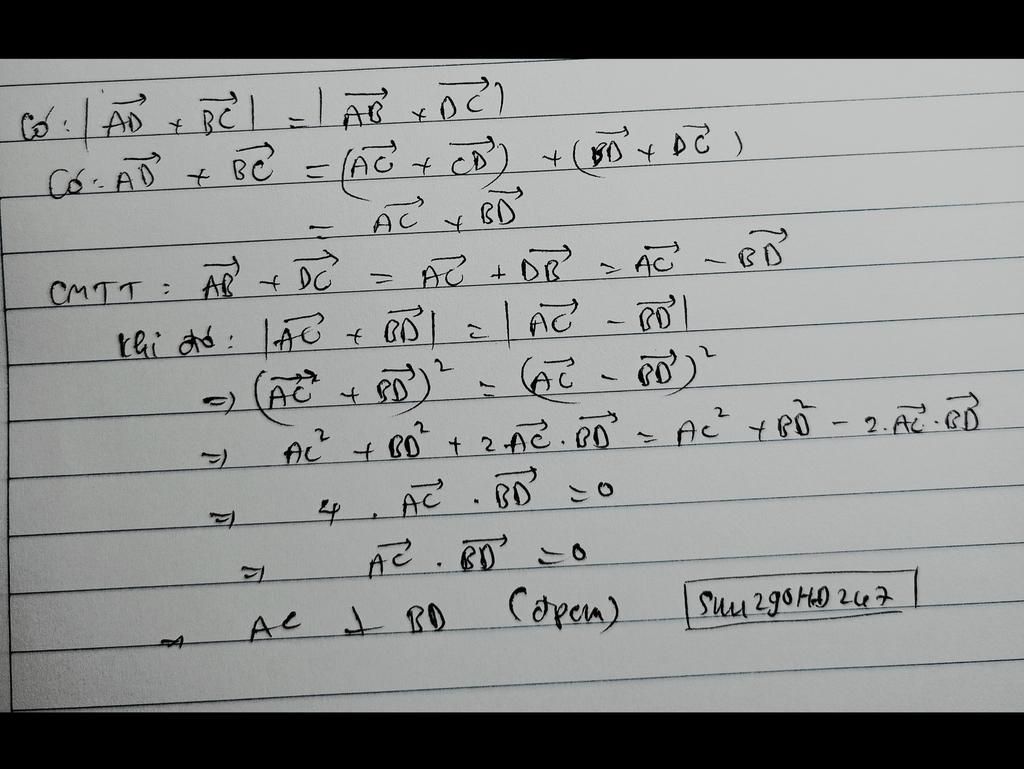 Có: |\overrightarrow{AD} + \overrightarrow{BC}| = |\overrightarrow{AB} + \overrightarrow{DC}|
Có: \overrightarrow{AD} + \overrightarrow{BC} = (\overrightarrow{AC} + \overrightarrow{CD}) + (\overrightarrow{BD} + \overrightarrow{DC})
= \overrightarrow{AC} + \overrightarrow{BD}
CMTT: \overrightarrow{AB} + \overrightarrow{DC} = \overrightarrow{AC} + \overrightarrow{DB} = \overrightarrow{AC} - \overrightarrow{BD}
Khi đó: |\overrightarrow{AC} + \overrightarrow{BD}| = |\overrightarrow{AC} - \overrightarrow{BD}|
=> (\overrightarrow{AC} + \overrightarrow{BD})² = (\overrightarrow{AC} - \overrightarrow{BD})²
=> AC² + BD² + 2.\overrightarrow{AC}.\overrightarrow{BD} = AC² + BD² - 2.\overrightarrow{AC}.\overrightarrow{BD}
=> 4.\overrightarrow{AC}.\overrightarrow{BD} = 0
=> \overrightarrow{AC}.\overrightarrow{BD} = 0
=> AC ⊥ BD (đpcm)